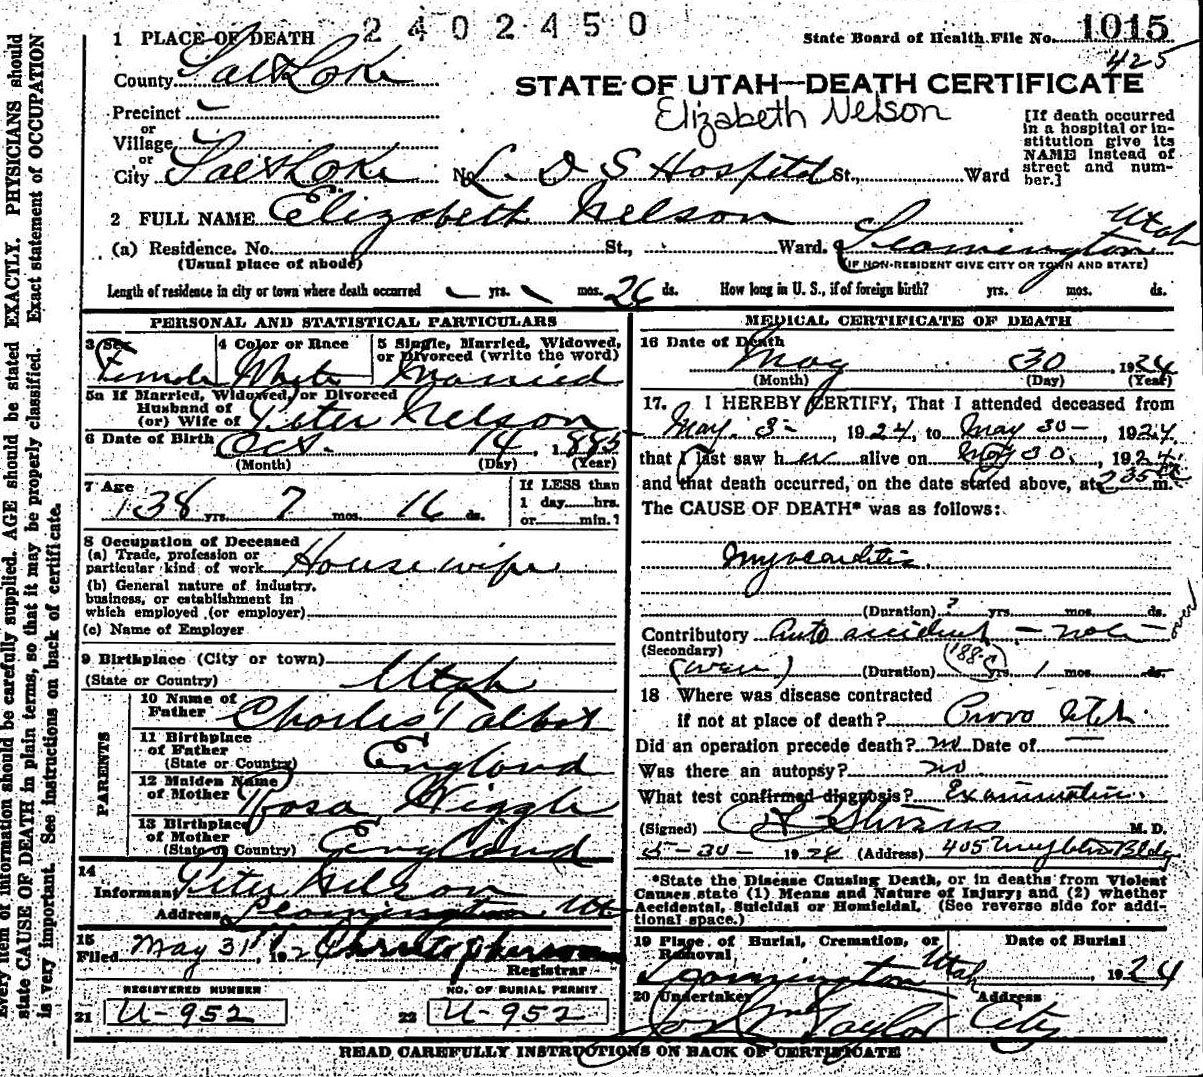 2402450
State Board of Health File No. 1015
425
1 PLACE OF DEATH
County Salt Lake
STATE OF UTAH—DEATH CERTIFICATE
Elizabeth Nelson
Precinct
or
Village
or
City Salt Lake No. L. D S Hospital St., Ward
[If death occurred
in a hospital or in-
stitution give its
NAME instead of
street and num-
ber.]
2 FULL NAME Elizabeth Nelson
(a) Residence. No. St., Ward. Leamington Utah
(Usual place of abode) (IF NON-RESIDENT GIVE CITY OR TOWN AND STATE)
Length of residence in city or town where death occurred yrs. mos. 26 ds. How long in U. S., if of foreign birth? yrs. mos. ds.
PERSONAL AND STATISTICAL PARTICULARS
3 Sex 4 Color or Race 5 Single, Married, Widowed,
or Divorced (write the word)
Female White Married
5a If Married, Widowed, or Divorced
Husband of
(or) Wife of Peter Nelson
6 Date of Birth Oct. 14, 1885
(Month) (Day) (Year)
7 Age 38 yrs. 7 mos. 16 ds.
If LESS than
1 day hrs.
or min.?
8 Occupation of Deceased
(a) Trade, profession or
particular kind of work House wife
(b) General nature of industry,
business, or establishment in
which employed (or employer)
(c) Name of Employer
9 Birthplace (City or town)
(State or Country) Utah
PARENTS
10 Name of
Father Charles Talbot
11 Birthplace
of Father
(State or Country) England
12 Maiden Name
of Mother Rosa Wiggle
13 Birthplace
of Mother
(State or Country) England
14
Informant Peter Nelson
Address Leamington Ut
15
Filed May 31st, 1924
Registrar
REGISTERED NUMBER NO. OF BURIAL PERMIT
21 U-952 22 U-952
MEDICAL CERTIFICATE OF DEATH
16 Date of Death
May 30 1924
(Month) (Day) (Year)
17. I HEREBY CERTIFY, That I attended deceased from
May. 3-, 1924, to May 30-, 1924
that I last saw her alive on May 30., 1924.
and that death occurred, on the date stated above, at 235 m.
The CAUSE OF DEATH* was as follows:
Myocarditis.
(Duration) ? yrs. mos. ds.
Contributory Auto accident - not -
(Secondary)
188-c
(Duration) yrs. 1 mos. ds.
18 Where was disease contracted
if not at place of death? Provo Utah
Did an operation precede death? no Date of
Was there an autopsy? no.
What test confirmed diagnosis? Examination.
(Signed) M. D.
5-30-1924 (Address) 405 Bldg
*State the Disease Causing Death, or in deaths from Violent
Causes state (1) Means and Nature of Injury; and (2) whether
Accidental, Suicidal or Homicidal. (See reverse side for addi-
tional space.)
19 Place of Burial, Cremation, or
Removal
Date of Burial
Leamington Utah 1924
20 Undertaker Address
Taylor City
READ CAREFULLY INSTRUCTIONS ON BACK OF CERTIFICATE
Every item of information should be carefully supplied. AGE should be stated EXACTLY. PHYSICIANS should
state CAUSE OF DEATH in plain terms, so that it may be properly classified. Exact statement of OCCUPATION
is very important. See instructions on back of certificate.